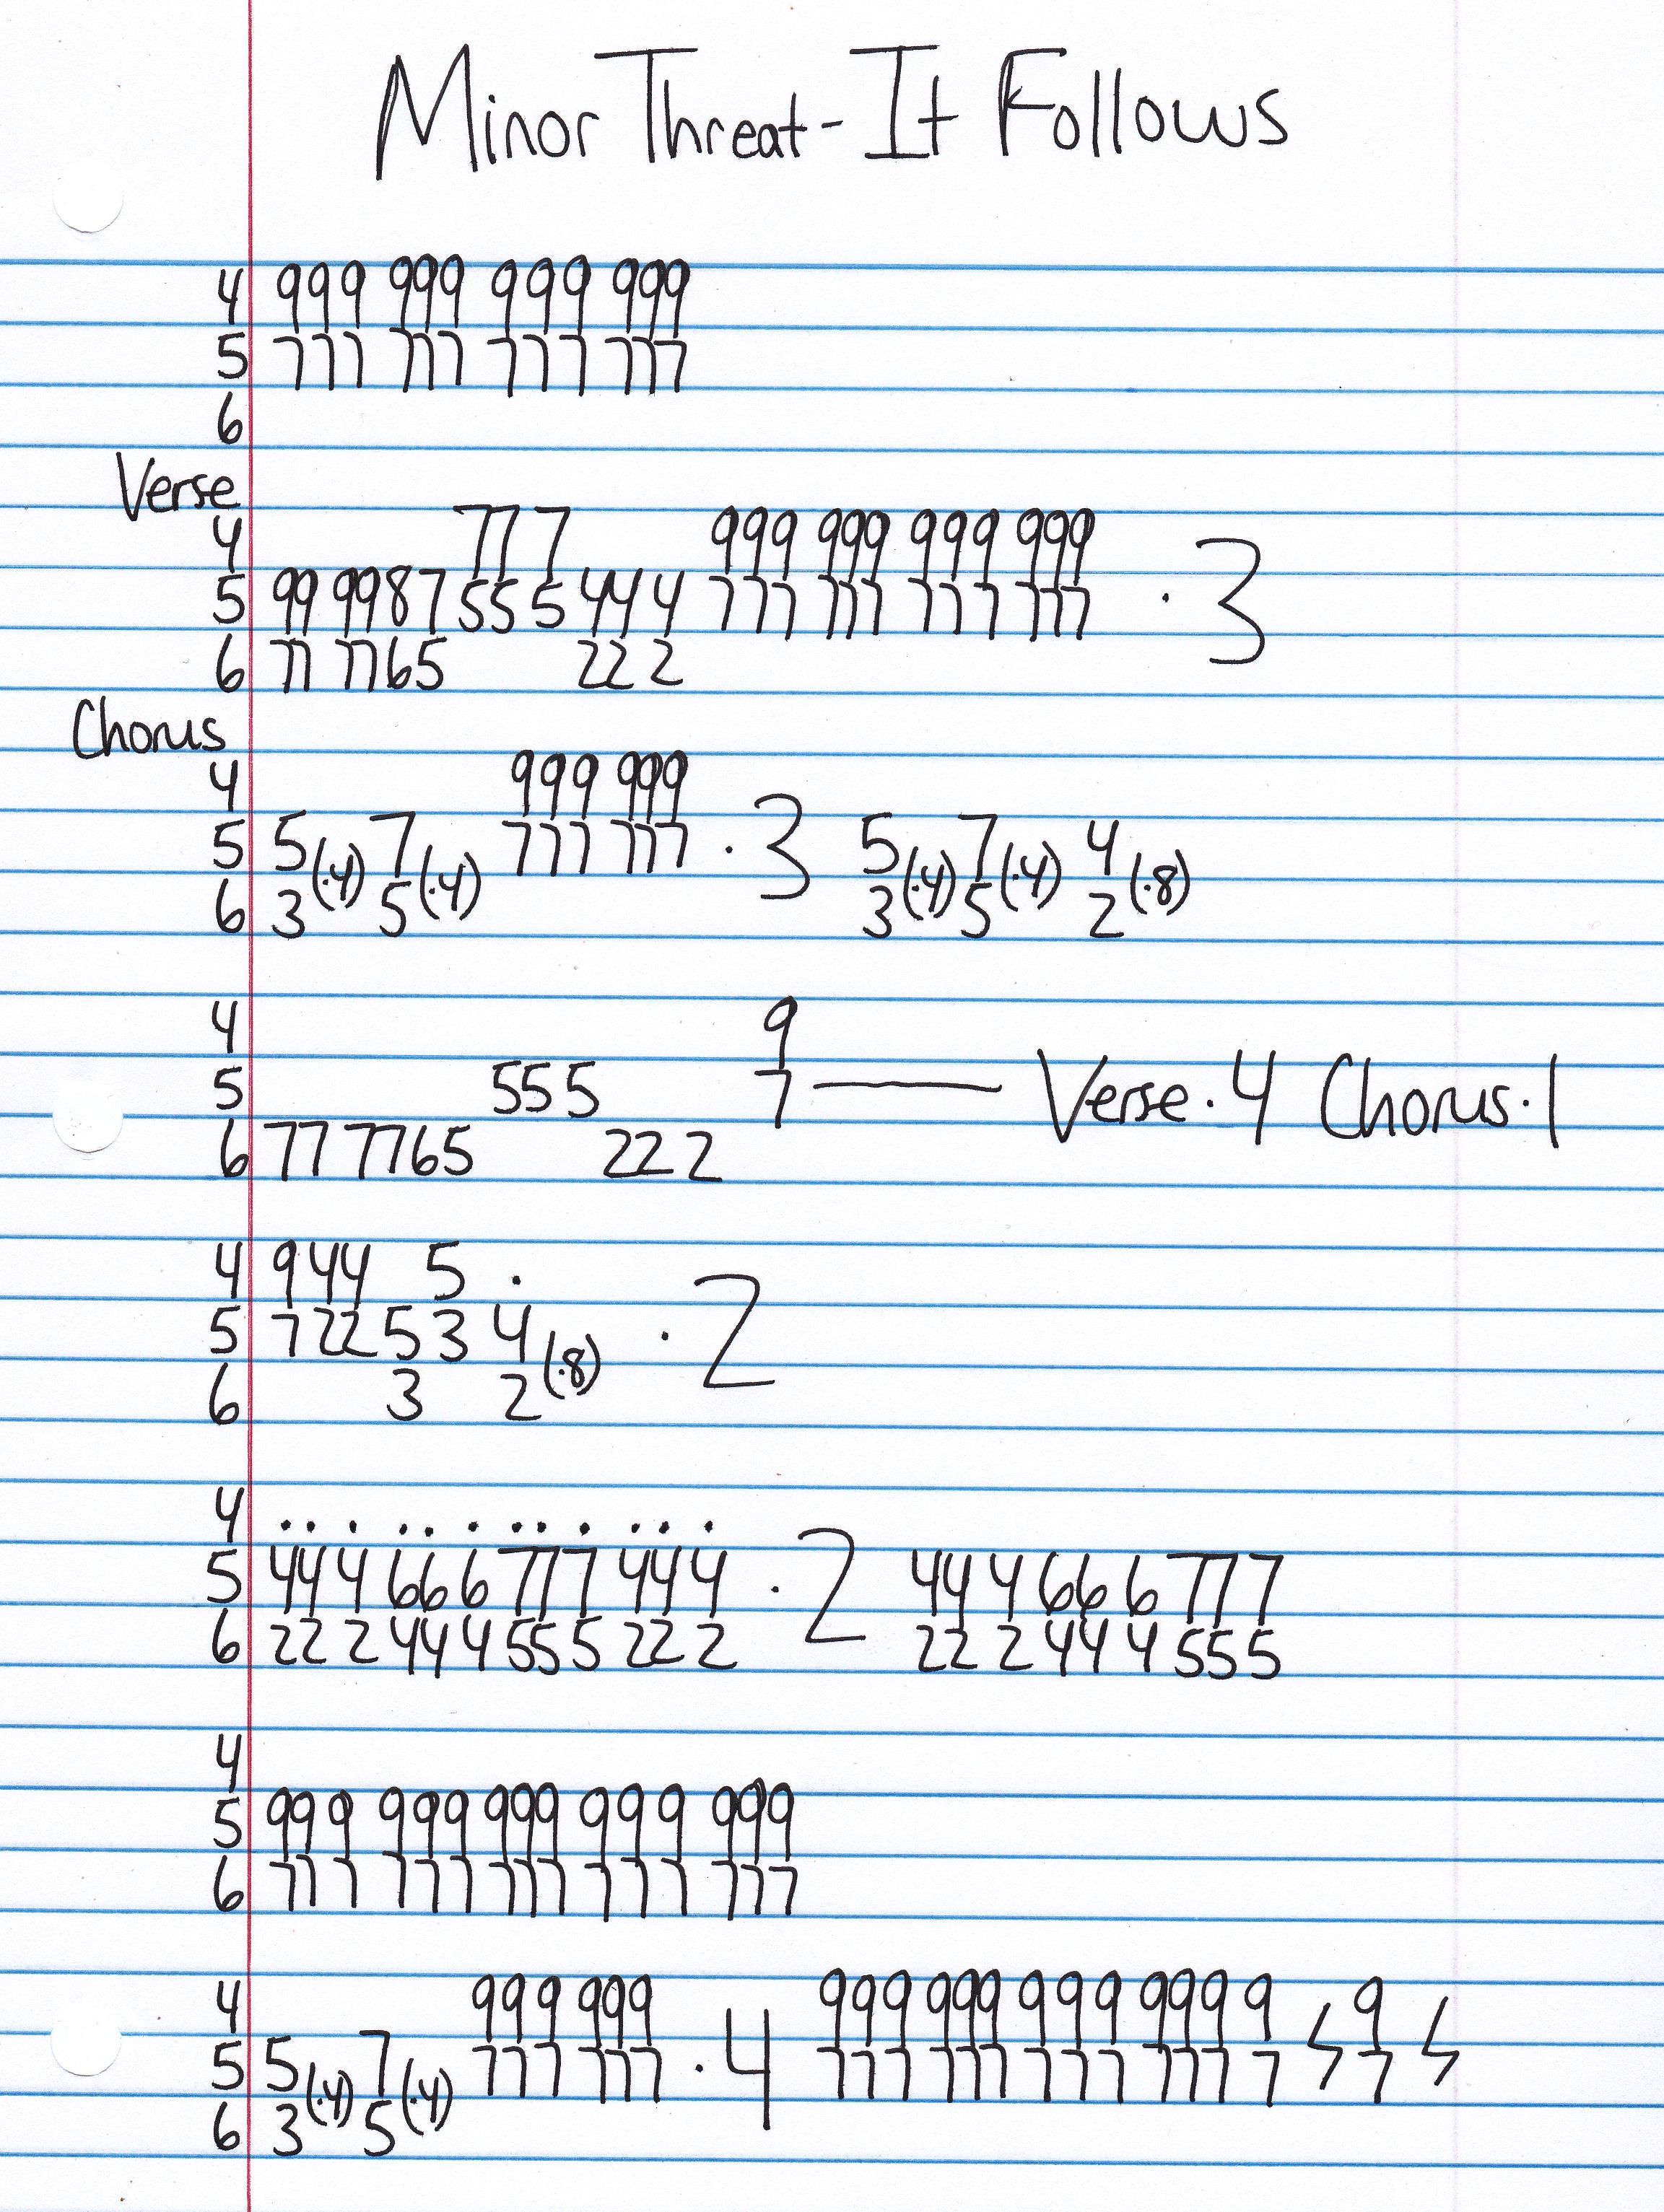 Minor Threat - It Follows
4 999 999 999 999
5 777 777 777 777
6
Verse
4 77 7 999 999 999 999
5 99 9987 55 5 44 4 777 777 777 777 · 3
6 77 7765 22 2
Chorus
4 999 999
5 5 (·4) 7 (·4) 777 777 · 3 5 (·4) 7 (·4) 4 (·8)
6 3 5 3 5 2
4 9
5 555 7 —— Verse · 4 Chorus · 1
6 77 7765 22 2
4 9 44 5 ·
5 7 22 5 3 4 (·8) · 2
6 3 2
4 · · · · · · · · · · · ·
5 44 4 66 6 77 7 44 4 · 2 44 4 66 6 77 7
6 22 2 44 4 55 5 22 2 22 2 44 4 55 5
4
5 99 9 999 999 999 999
6 77 7 777 777 777 777
4 999 999 999 999 999 9999 9 9
5 5 (·4) 7 (·4) 777 777 · 4 777 777 777 777 7 7
6 3 5